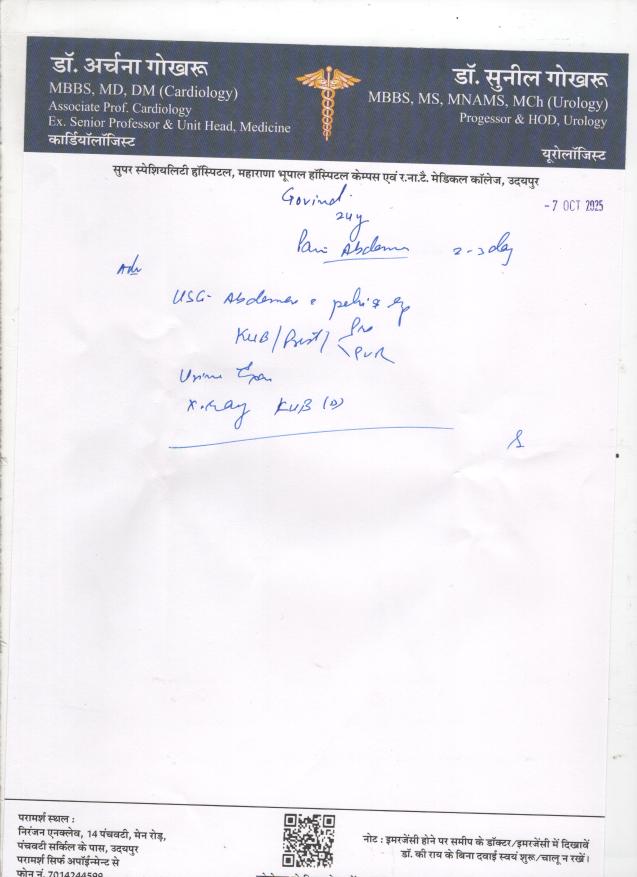 डॉ. अर्चना गोखरू
MBBS, MD, DM (Cardiology)
Associate Prof. Cardiology
Ex. Senior Professor & Unit Head, Medicine
कार्डियॉलॉजिस्ट
डॉ. सुनील गोखरू
MBBS, MS, MNAMS, MCh (Urology)
Progessor & HOD, Urology
यूरोलॉजिस्ट
सुपर स्पेशियलिटी हॉस्पिटल, महाराणा भूपाल हॉस्पिटल केम्पस एवं र.ना.टै. मेडिकल कॉलेज, उदयपुर
-7 OCT 2025
Govind
24y
Pain Abdomen 2-3 day
Adv
USG- Abdomen & pelvis
KUB/Prost/ Pre
PVR
Urine Exam
X-Ray KUB (D)
परामर्श स्थल :
निरंजन एनक्लेव, 14 पंचवटी, मेन रोड़,
पंचवटी सर्किल के पास, उदयपुर
परामर्श सिर्फ अपॉईन्मेन्ट से
फोन नं. 7014244599
नोट : इमरजेंसी होने पर समीप के डॉक्टर/इमरजेंसी में दिखावें
डॉ. की राय के बिना दवाई स्वयं शुरू/चालू न रखें।